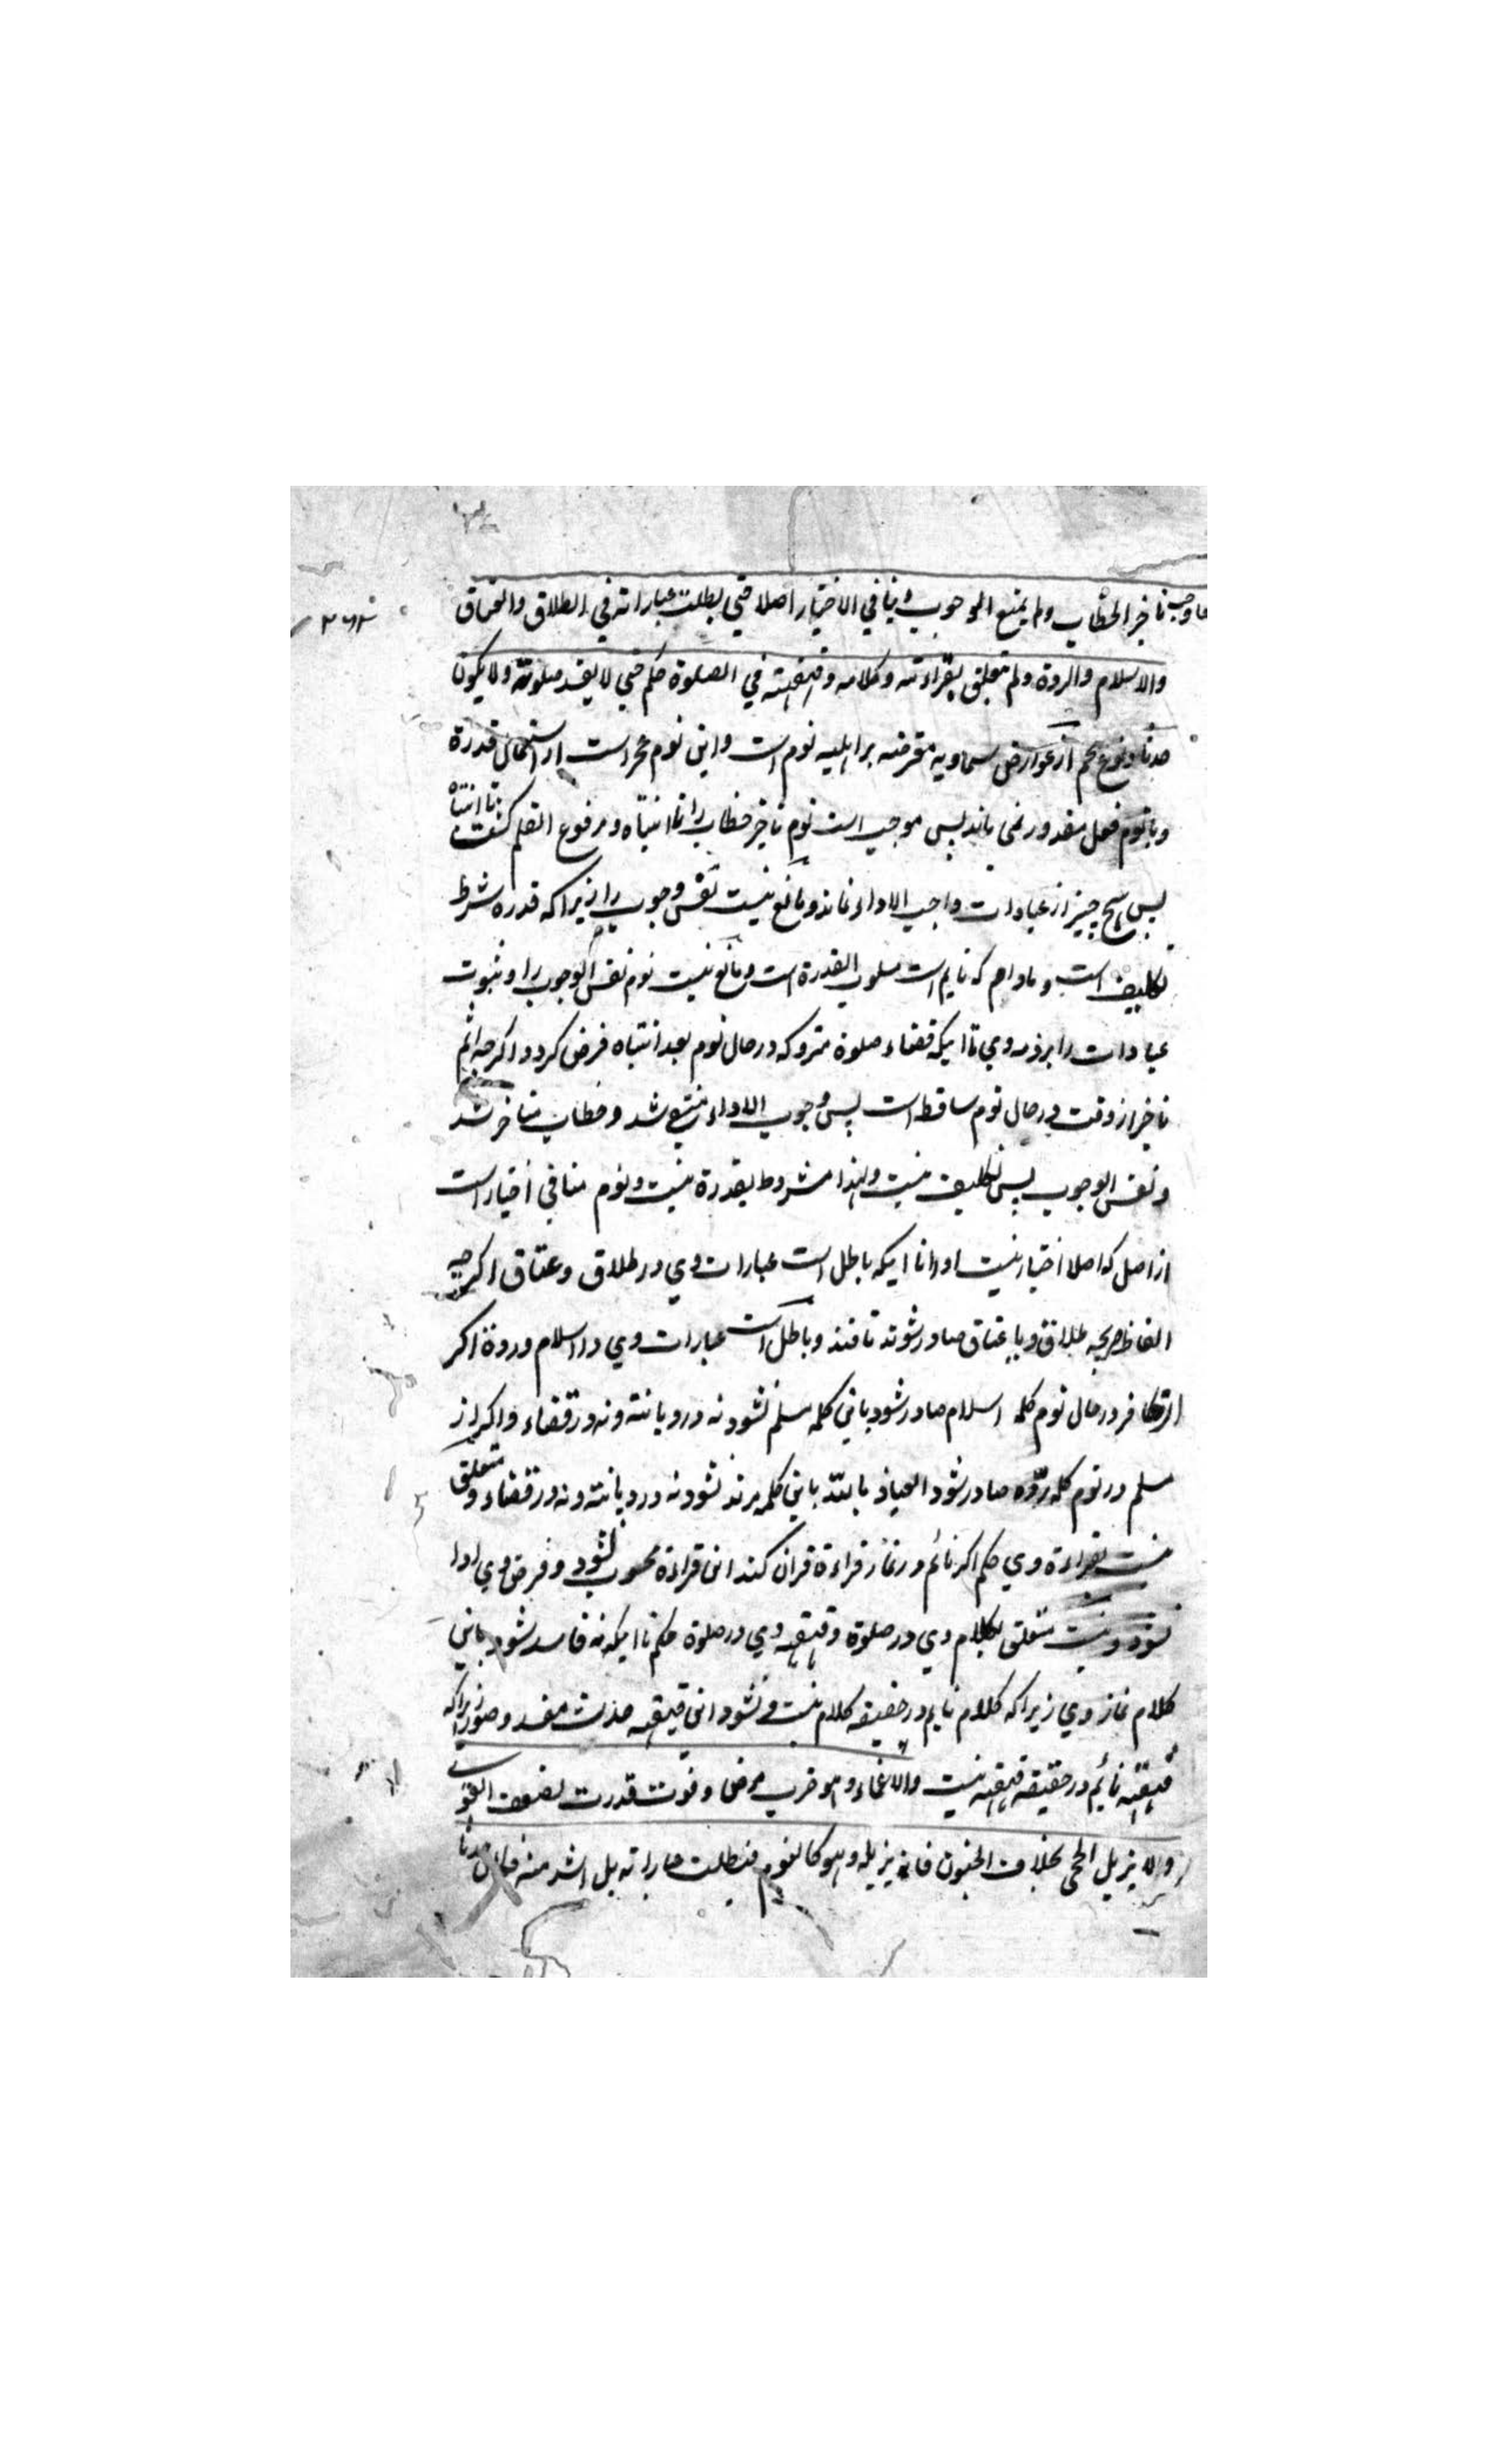 فاوجب تاخير الخطاب ولم يمنع الوجوب وينافي الاختيار اصلا حتي بطلت عباراته في الطلاق والعتاق
والاسلام والردة ولم يتعلق بقراءته وكلامه وقهقهته في الصلوة حكم حتي لا يفسد صلوته ولا يكون
حدثا ونوع پنجم از عوارض سماويه معترضه بر اهليه نوم است واين نوم عجز است از استعمال قدرة
وبا نوم فعل مقدور نمي ماند پس موجب است نوم تاخير خطاب را تا انتباه ومرفوع القلم گشت تا انتباه
پس هيچ چيز از عبادات واجب الاداء نماند ومانع نيست نفس وجوب را زيراكه قدرة شرط
تكليف است وماوام كه نايم است مسلوب القدرة است ومانع نيست نوم نفس الوجوب را وثبوت
عبادات را برذمه وي تا اينكه قضاء صلوة متروكه درحال نوم بعد انتباه فرض گردد اگرچه اثم
تاخير از وقت درحال نوم ساقط است پس وجوب الاداء ممتنع شد وخطاب متاخر شد
ونفس الوجوب پس تكليف نيست ولهذا مشروط بقدرة نيست ونوم منافي اختيار است
از اصل كه اصلا اختيار نيست اورا تا اينكه باطل است عبارات وي در طلاق وعتاق اگرچه
الفاظ صريحه طلاق ويا عتاق صادر شوند نافذ وباطل است عبارات وي در اسلام وردة اگر
از كافر درحال نوم كلمه اسلام صادر شود باين كلمه مسلم نشود نه در ديانته ونه در قضاء واگر از
مسلم در نوم كلمه ردّه صادر شود العياذ بالله باين كلمه مرتد نشود نه در ديانته ونه در قضاء ومتعلق
نيست بقراءة وي حكم اگر نائم در نماز قراءة قران كند اين قراءة محسوب نشود وفرض وي ادا
نشود ونيست متعلق بكلام وي در صلوة وقهقهه وي در صلوة حكم تا اينكه نه فاسد شود باين
كلام نماز وي زيراكه كلام نايم در حقيقه كلام نيست ونشود اين قهقهه حدث مفسد وضو زيراكه
قهقهه نائم در حقيقه قهقهه نيست والاغماء وهو ضرب مرض وفوت قدرت لضعف القوي
ولا يزيل الحجي بخلاف الجنون فانه يزيله وهو كالنوم فبطلت عباراته بل اشد منه فكان حدثا